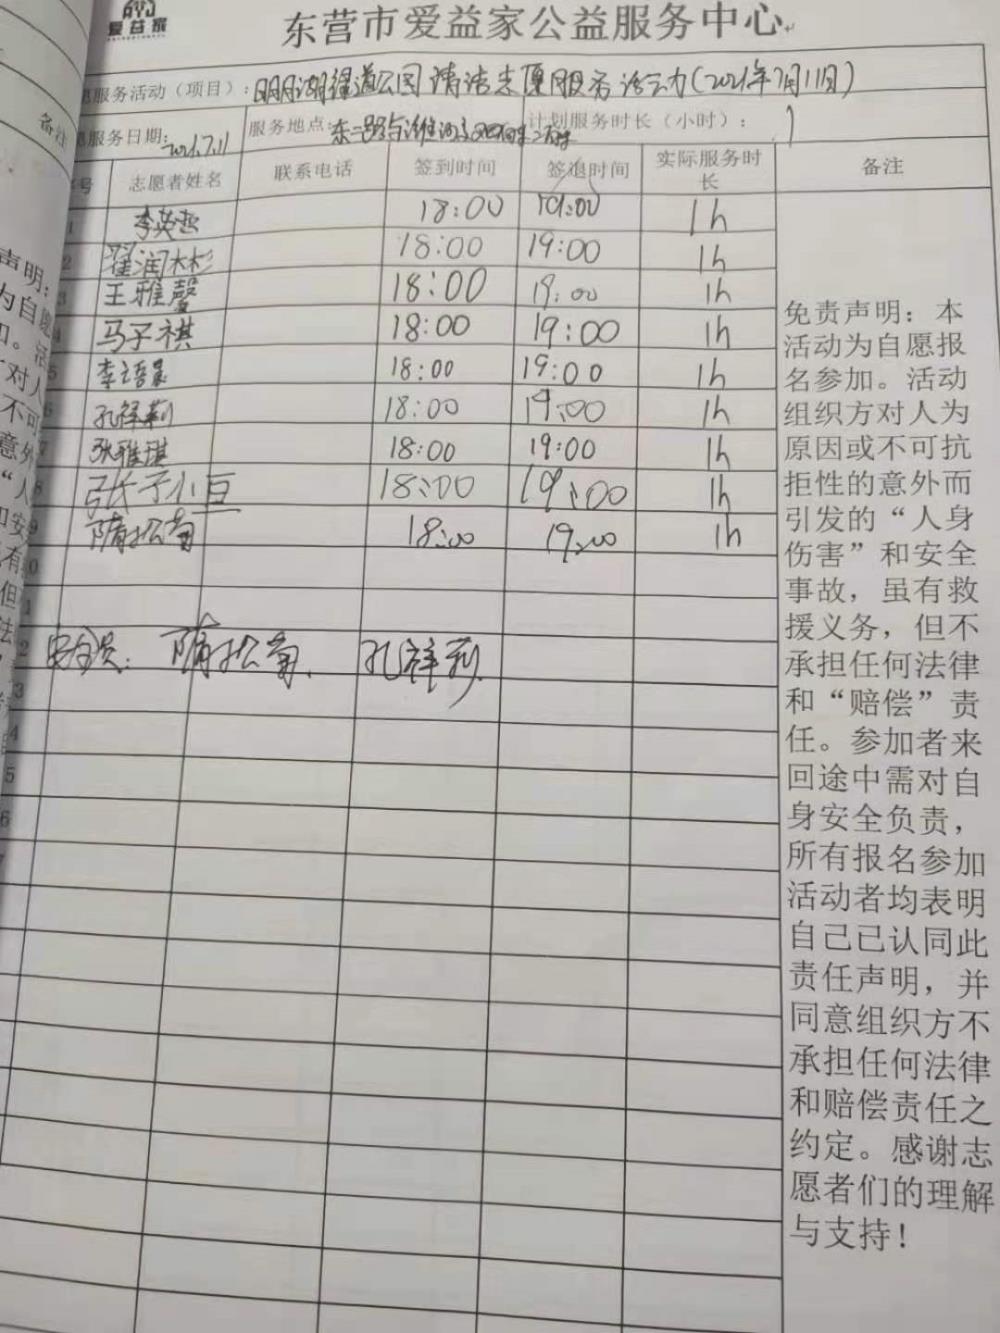 爱益家
东营市爱益家公益服务中心
服务活动（项目）：明月湖绿道公园清洁志愿服务活动(2021年7月11日)
服务日期：2021.7.11 服务地点： 计划服务时长（小时）：1
备注
号 志愿者姓名 联系电话 签到时间 签退时间 实际服务时长 备注
1 李英 18:00 19:00 1h
2 翟润彬 18:00 19:00 1h
3 王雅馨 18:00 19:00 1h
马子祺 18:00 19:00 1h
5 李语 18:00 19:00 1h
6 孔祥莉 18:00 19:00 1h
7 张雅琪 18:00 19:00 1h
8 张子小豆 18:00 19:00 1h
9 隋松菊 18:00 19:00 1h
0
1
2 安全员：隋松菊、孔祥莉
3
4
5
6
7
免责声明：本
活动为自愿报
名参加。活动
组织方对人为
原因或不可抗
拒性的意外而
引发的“人身
伤害”和安全
事故，虽有救
援义务，但不
承担任何法律
和“赔偿”责
任。参加者来
回途中需对自
身安全负责，
所有报名参加
活动者均表明
自己已认同此
责任声明，并
同意组织方不
承担任何法律
和赔偿责任之
约定。感谢志
愿者们的理解
与支持！